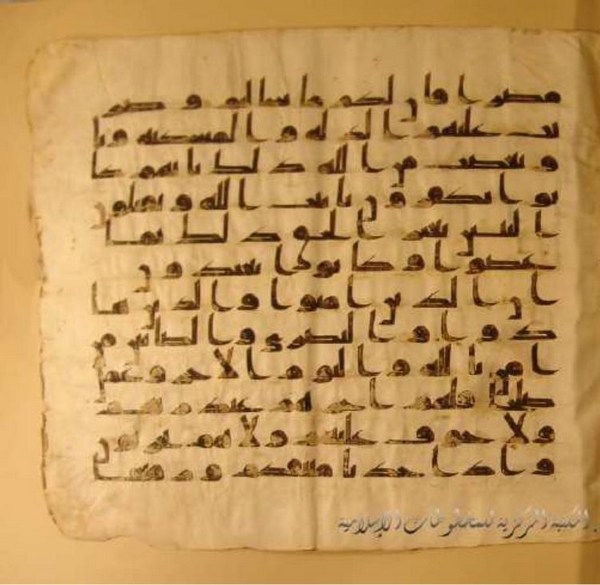 مصرا فان لكم ما سالتم و ضر
بت عليهم الذله و المسكنه وبا
و بغضب من الله ذلك بانهم كا
نوا يكفرون بايت الله و يقتلون
النبين بغير الحق ذلك بما
عصوا وكانوا يعتدون
ان الذين امنوا والذين ها
دوا والنصرى والصابين من
امن بالله واليوم الاخر وعمل
صلحا فلهم اجرهم عند ربهم
ولا خوف عليهم ولا هم يحزنون
واذ اخذنا ميثقكم و رفعنا
المكتبة المركزية للمخطوطات الإسلامية